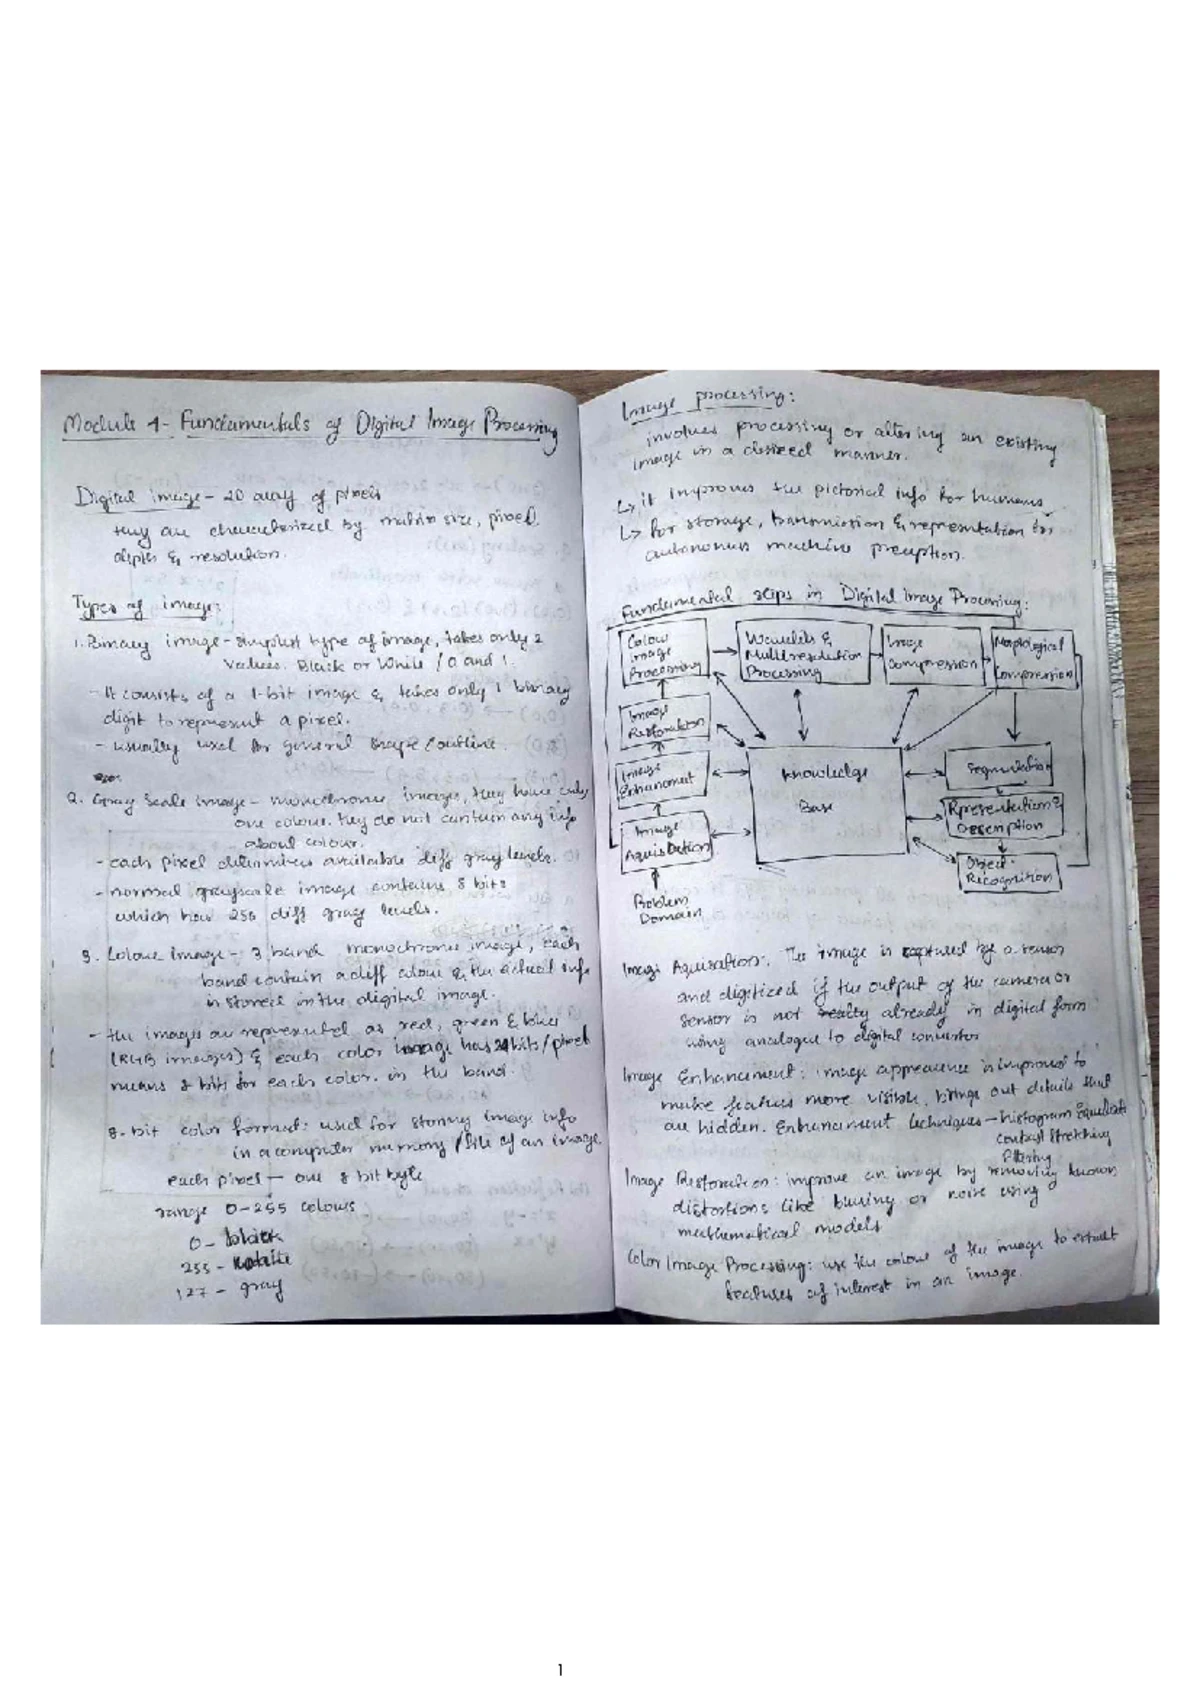 Module 4- Fundamentals of Digital Image Processing
Digital image - 2D array of pixels
they are characterized by matrix size, pixel
depth & resolution.
Types of images
1. Binary image - simplest type of image, takes only 2
values. Black or White / 0 and 1.
- It consists of a 1-bit image & takes only 1 binary
digit to represent a pixel.
- usually used for general shape/outline.
2. Gray Scale Image - monochrome images, they have only
one colour. they do not contain any info
about colour.
- each pixel determines available diff gray levels.
- normal grayscale image contains 8 bits
which has 256 diff gray levels.
3. Colour Image - 3 band monochrome image, each
band contain a diff colour & the actual info
is stored in the digital image.
- the images are represented as red, green & blue
(RGB images) & each color image has 24 bits/pixel
means 8 bits for each color. in the band.
8-bit color format: used for storing image info
in a computer memory / file of an image.
each pixel - one 8 bit byte
range 0-255 colours
0 - black
255 - white
127 - gray
Image processing:
involves processing or altering an existing
image in a desired manner.
↳ it improves the pictorial info for humans
↳ for storage, transmission & representation for
autonomous machine preception.
Fundamental steps in Digital Image Processing:
Colour
Image
Processing
Wavelets &
Multiresolution
Processing
Image
Compression
Morplological
Compression
Image
Restoration
Image
Enhancment
Image
Aquisitation
Problem
Domain
Knowledge
Base
Segmentation
Rpresentation &
Descrption
Object-
Recognition
Image Aquisation: The image is captured by a sensor
and digitized if the output of the camera or
sensor is not already in digital form
using analogue to digital convertor
Image Enhancement: image apprearence is improved to
make features more visible, brings out details that
are hidden. Enhancement techniques - histogram Equalizat
contrast stretching
filtering
Image Restoration: improve an image by removing known
distortions like blurring or noise using
mathematical models
Color Image Processing: use the colour of the image to extract
features of interest in an image.
1